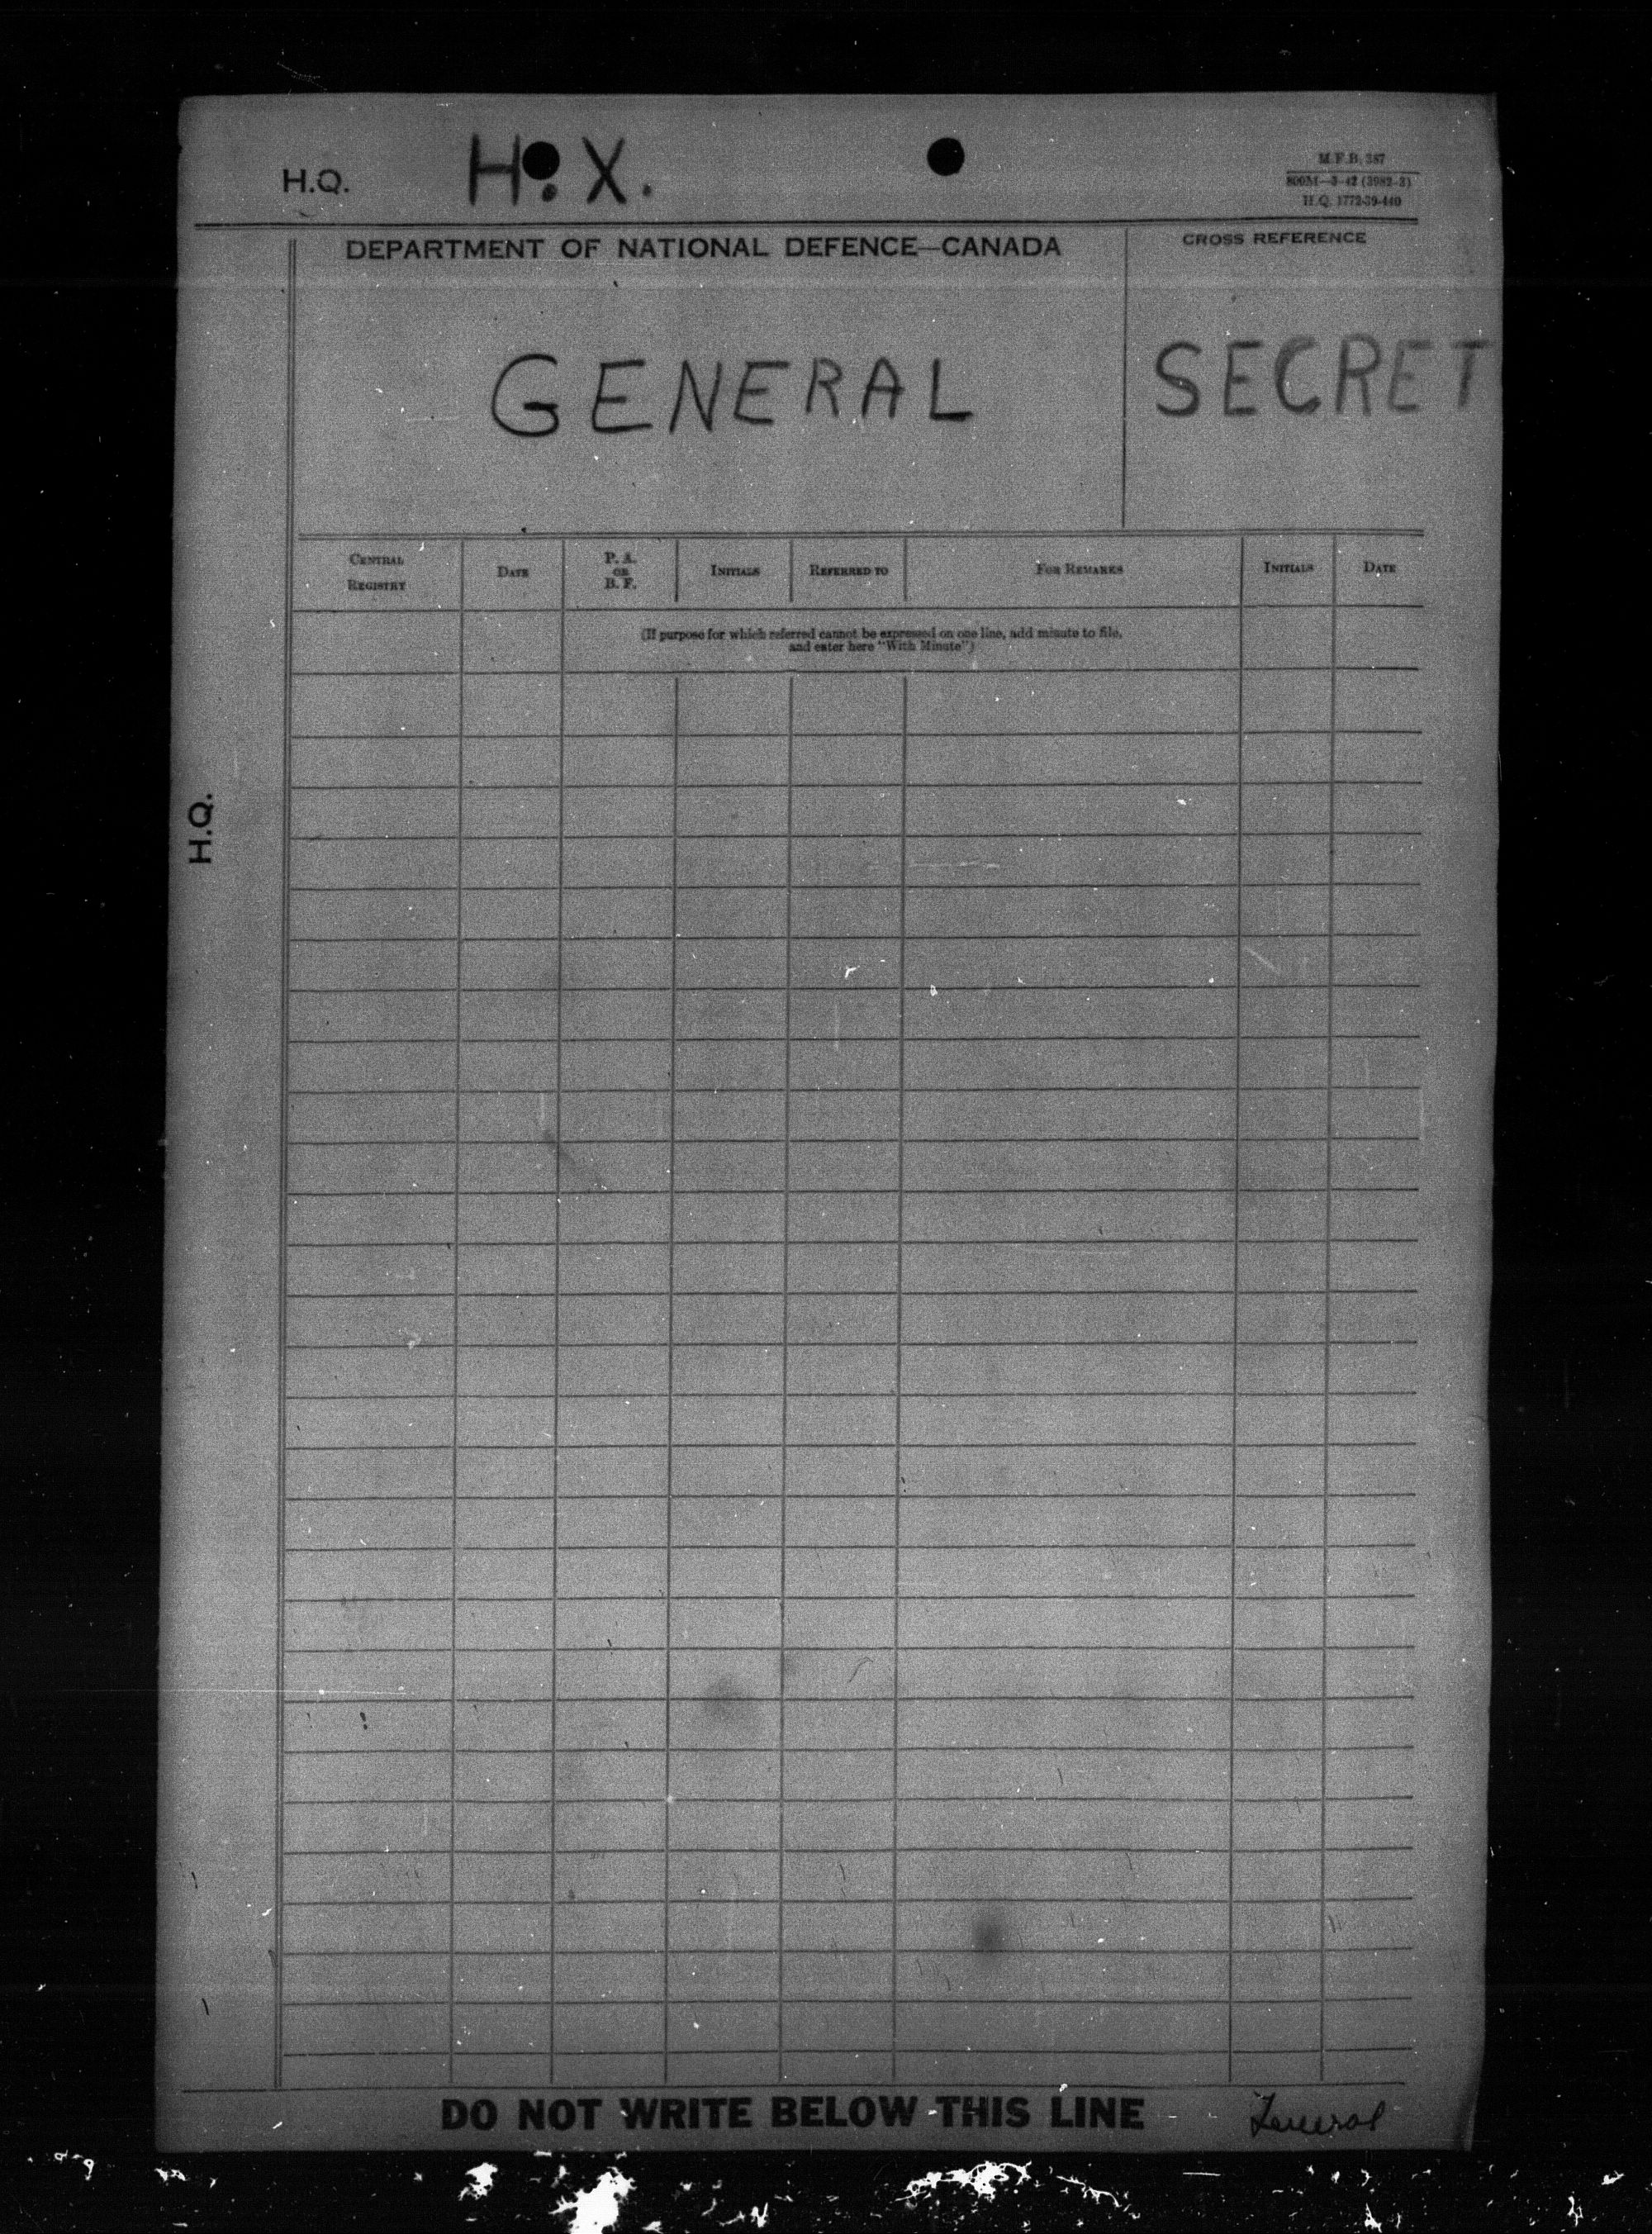 H.Q. H. X.
M.F.B. 387
800M—3-42 (3982-3)
H.Q. 1772-39-440
DEPARTMENT OF NATIONAL DEFENCE—CANADA
CROSS REFERENCE
GENERAL
SECRET
CENTRAL REGISTRY
DATE
P. A. OR B. F.
INITIALS
REFERRED TO
FOR REMARKS
INITIALS
DATE
(If purpose for which referred cannot be expressed on one line, add minute to file,
and enter here "With Minute")
H.Q.
DO NOT WRITE BELOW THIS LINE
General